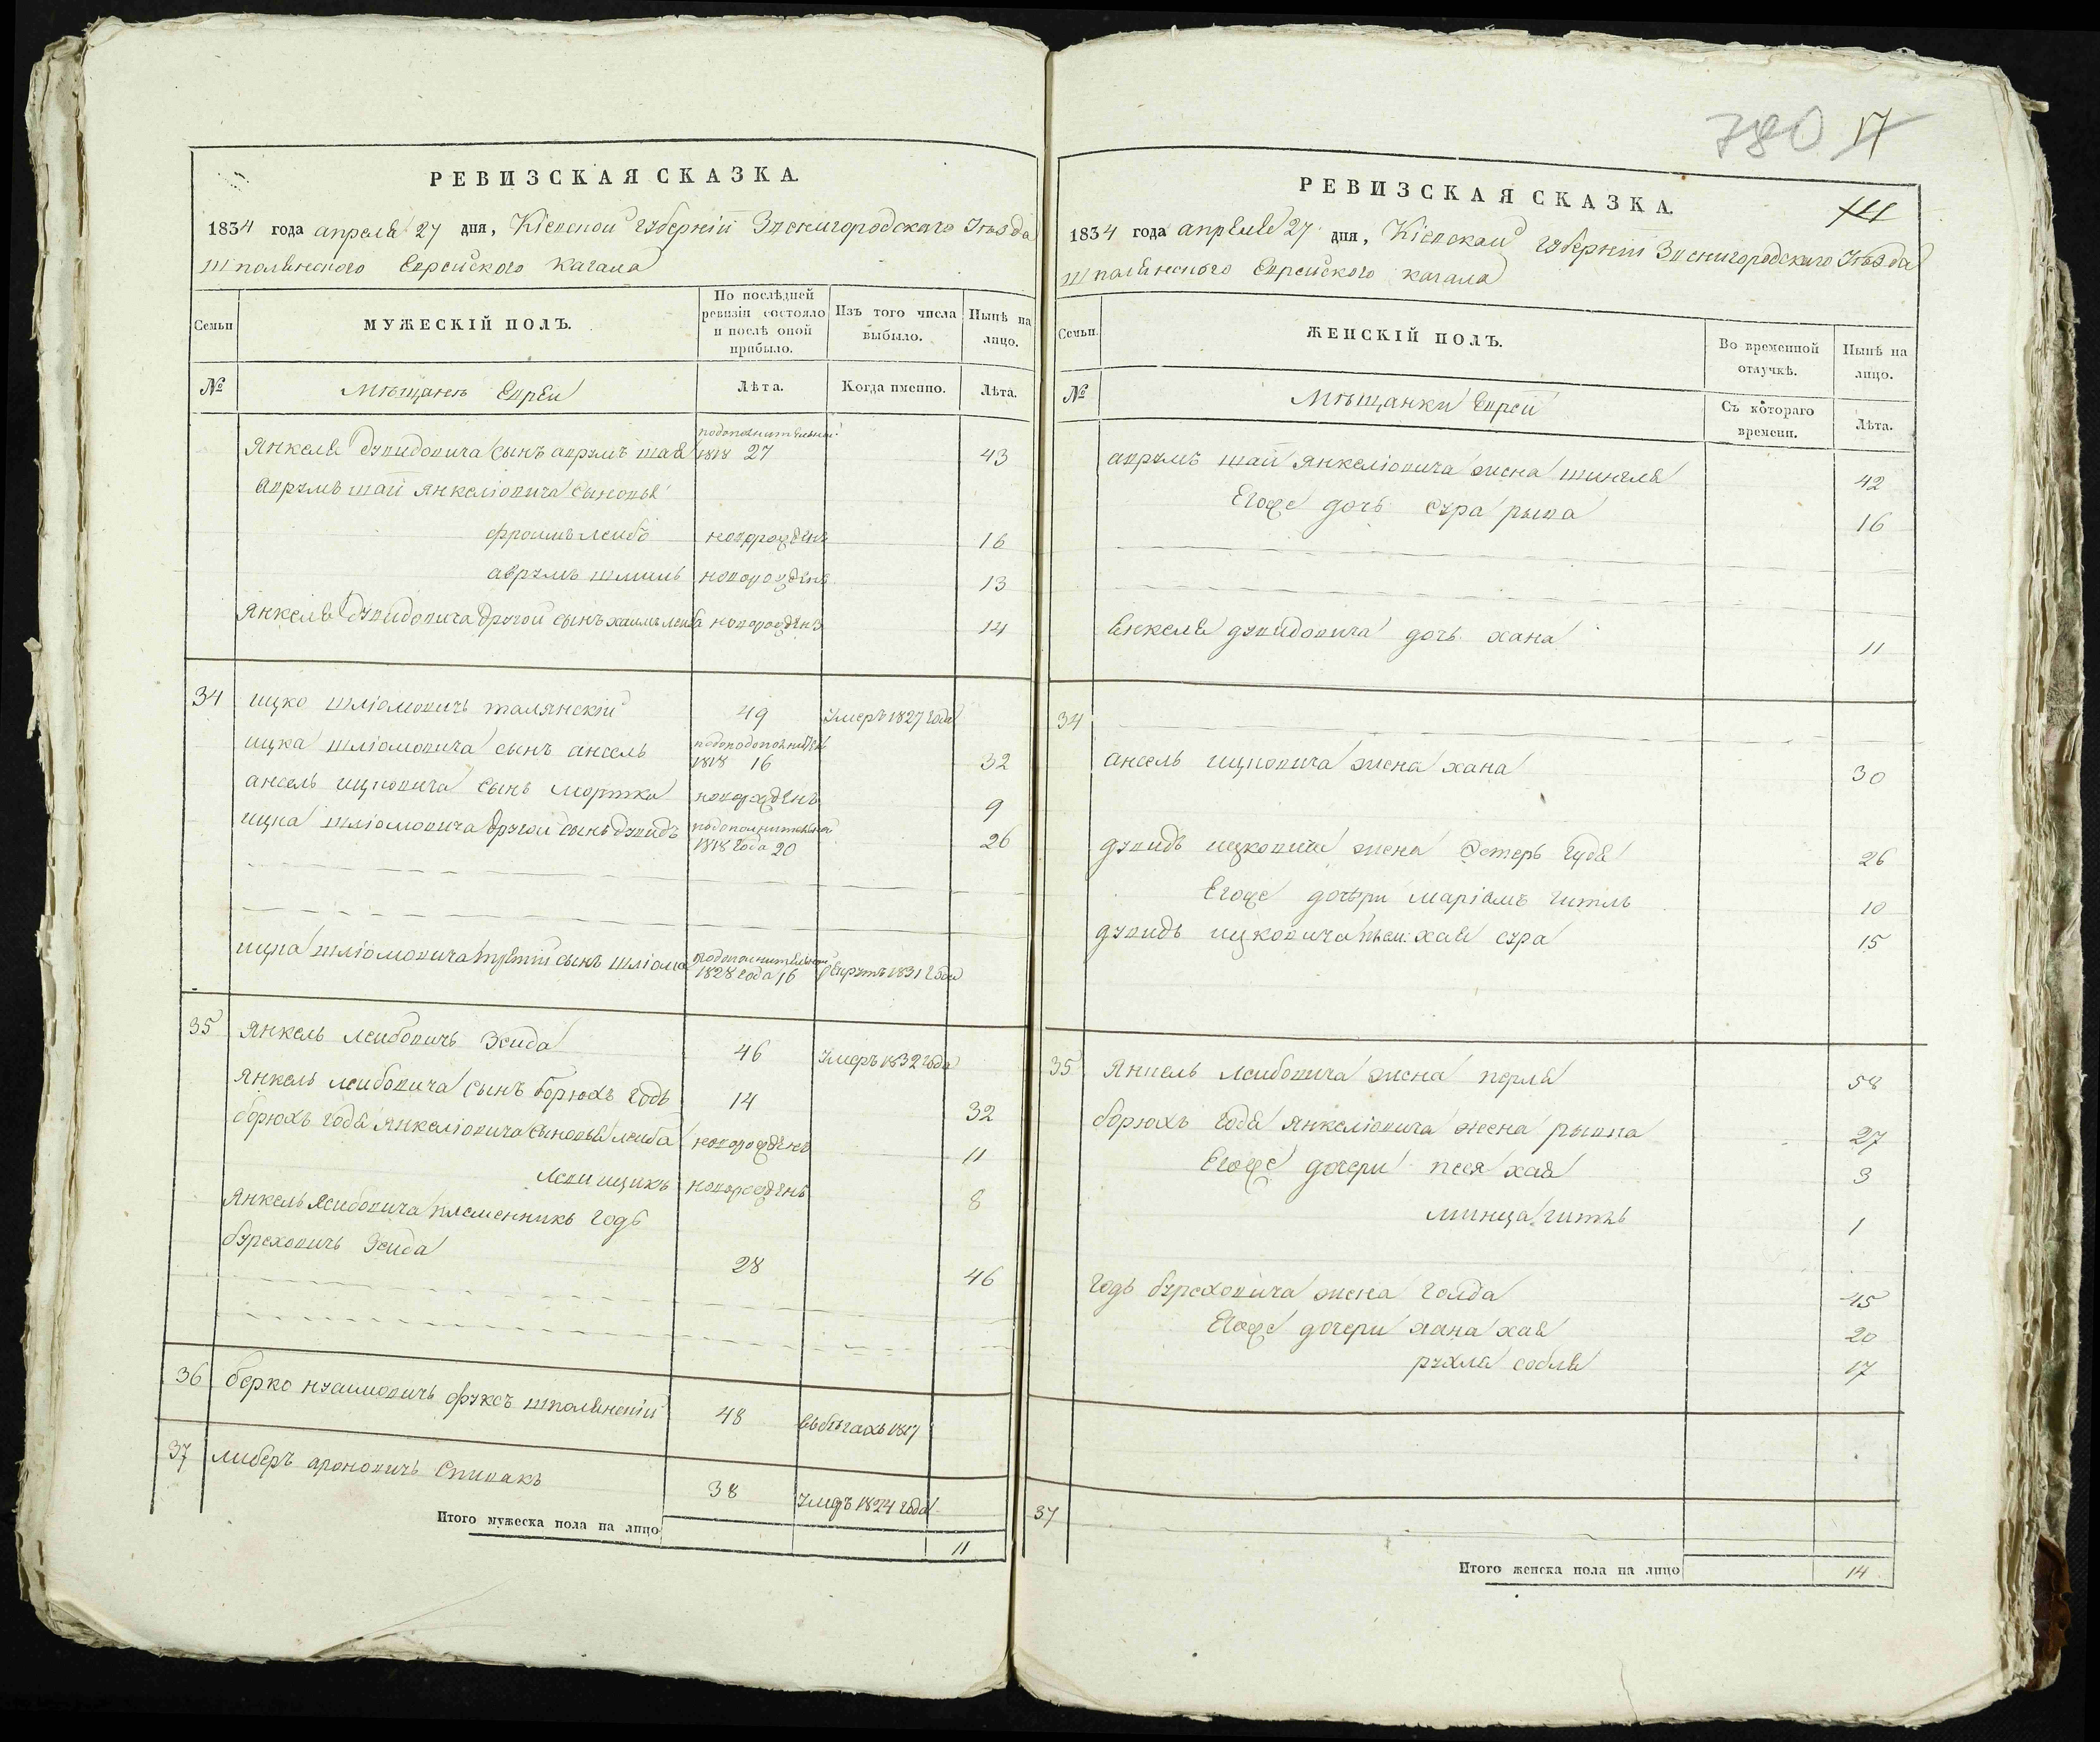 РЕВИЗСКАЯ СКАЗКА.
1834 года апреля 27 дня, Кіевской губерніи Звенигородского Уѣзда
Шполянского Еврейского Кагала
Семьи
МУЖЕСКІЙ ПОЛЪ.
По послѣдней ревизіи состояло и послѣ оной прибыло.
Изъ того числа выбыло.
Нынѣ на лицо.
№
Мѣщанѣ Евреи
Лѣта.
Когда именно.
Лѣта.
Янкеля Дувидовича сынъ аврумъ шая 1818 27 43
Аврумъ шаи Янкеліовича сыновья
фроимъ леибъ новорожденъ 16
аврумъ шмиль новорожденъ 13
Янкеля Дувидовича другои сынъ хаимъ леиба новорожденъ 14
34 ицко шліомовичъ талянскіи 49 умеръ 1827 года
ицка шліомовича сынъ ансель 1818 16 32
ансель ицковича сынъ мортко новорожденъ 9
ицка шліомовича другои сынъ дувидъ 1818 года 20 26
ицка шліомовича третіи сынъ шліома 1828 года 16 рекрутъ 1831 года
35 Янкель леибовичъ Зеида 46 умеръ 1832 года
Янкель леибовича сынъ борюхъ годь 14 32
борюхъ годя Янкеліовича сыновья леиба новорожденъ 11
леви ицикъ новорожденъ 8
Янкель леибовича племенникъ годь
бурсховичъ Зеида 28 46
36 берко нухимовичъ фуксъ шполянскіи 48 въ бѣгахъ 1827
37 либеръ ароновичъ Спивакъ 38 умеръ 1824 года
Итого мужеска пола на лицо 11
780 17
РЕВИЗСКАЯ СКАЗКА.
1834 года апреля 27 дня, Кіевской губерніи Звенигородского Уѣзда
Шполянского Еврейского Кагала
Семьи.
ЖЕНСКІЙ ПОЛЪ.
Во временной отлучкѣ.
Нынѣ на лицо.
№
Мѣщанки Евреи
Съ котораго времени.
Лѣта.
аврумъ шаи Янкеліовича жена шингля 42
Егоже дочь сура рыва 16
Енкеля дувидовича дочь хана 11
34
ансель ицковича жена хана 30
дувидъ ицковича жена Естерь гудя 26
Егоже дочери маріамъ гитль 10
дувидъ ицковича хая сура 15
35 Янкель леибовича жена перля 58
борюхъ годя Янкеліовича жена рывка 27
Егоже дочери песя хая 3
минца гитль 1
годь бурсховича жена голда 45
Егоже дочери хана хая 20
рухля собля 17
37
Итого женска пола на лицо 14